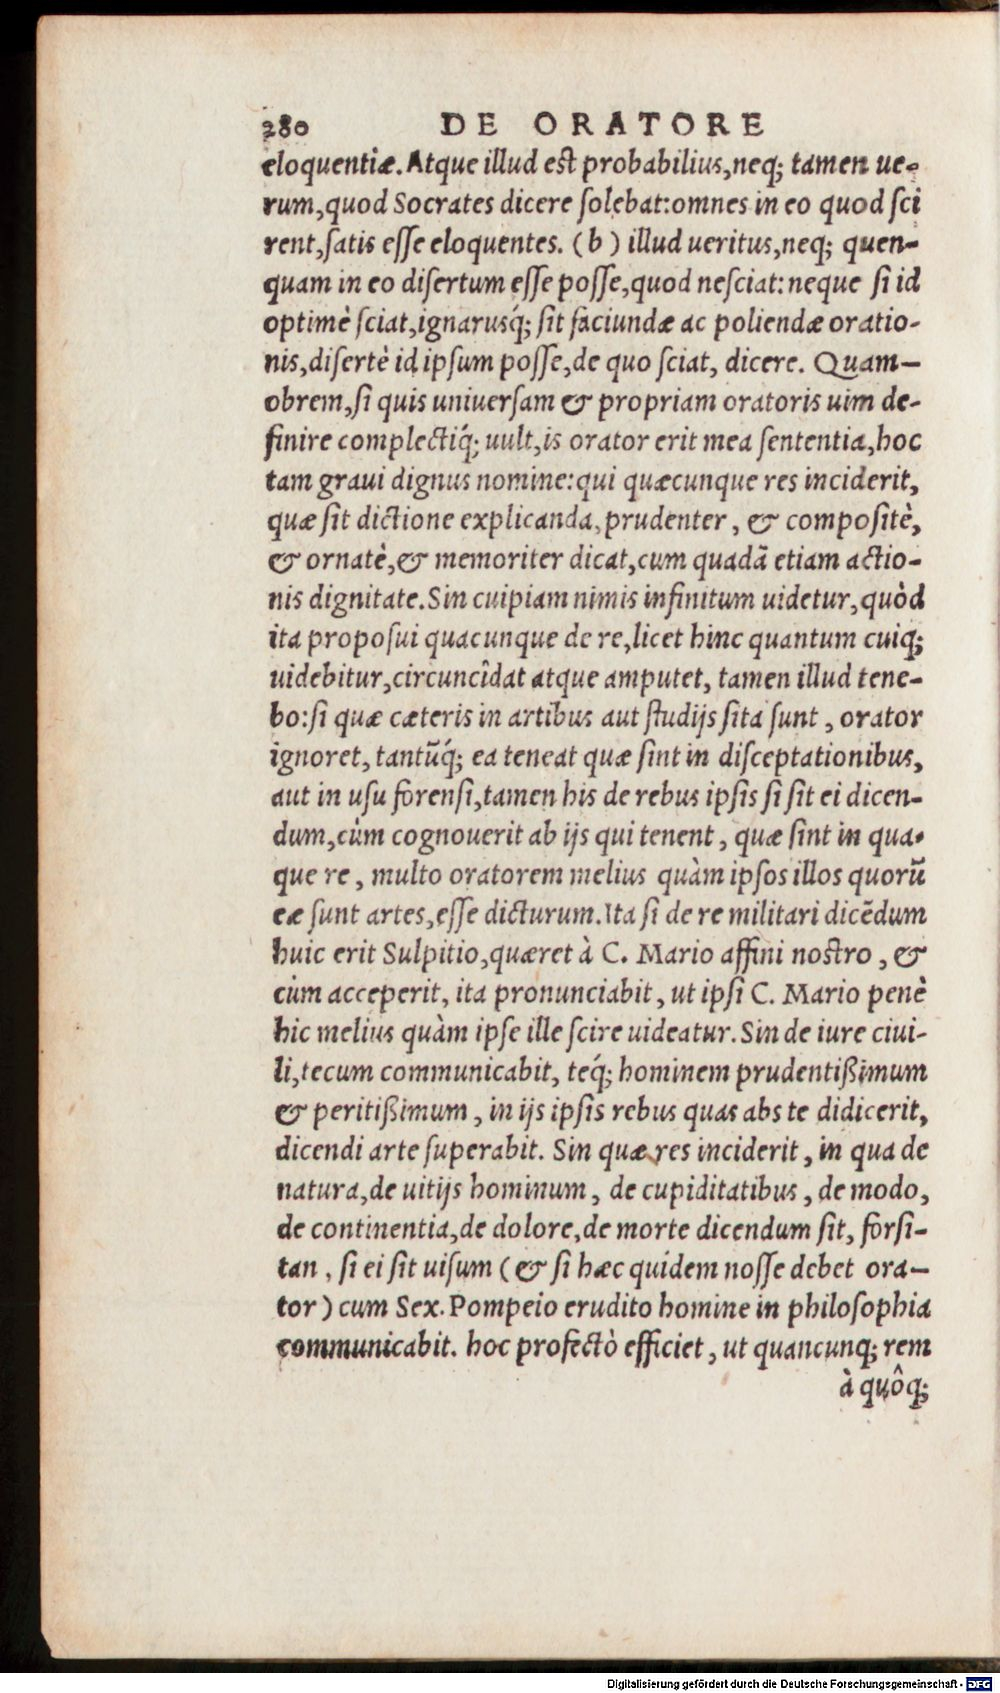 280 DE ORATORE
eloquentiæ. Atque illud est probabilius,neq; tamen ue-
rum,quod Socrates dicere solebat:omnes in eo quod sci
rent,satis esse eloquentes. (b) illud ueritus,neq; quen-
quam in eo disertum esse posse,quod nesciat: neque si id
optimè sciat,ignarusq́; sit faciundæ ac poliendæ oratio-
nis,disertè id ipsum posse,de quo sciat, dicere. Quam-
obrem,si quis uniuersam & propriam oratoris uim de-
finire complectiq́; uult,is orator erit mea sententia,hoc
tam graui dignus nomine: qui quæcunque res inciderit,
quæ sit dictione explicanda, prudenter, & compositè,
& ornatè,& memoriter dicat,cum quadã etiam actio-
nis dignitate. Sin cuipiam nimis infinitum uidetur,quòd
ita proposui quacunque de re,licet hinc quantum cuiq;
uidebitur,circuncîdat atque amputet, tamen illud tene-
bo: si quæ cæteris in artibus aut studijs sita sunt, orator
ignoret, tantũq́; ea teneat quæ sint in disceptationibus,
aut in usu forensi,tamen his de rebus ipsis si sit ei dicen-
dum,cùm cognouerit ab ijs qui tenent, quæ sint in qua-
que re, multo oratorem melius quàm ipsos illos quorũ
eæ sunt artes,esse dicturum. Ita si de re militari dicẽdum
huic erit Sulpitio,quæret à C. Mario affini nostro, &
cùm acceperit, ita pronunciabit, ut ipsi C. Mario penè
hic melius quàm ipse ille scire uideatur. Sin de iure ciui-
li,tecum communicabit, teq́; hominem prudentißimum
& peritißimum, in ijs ipsis rebus quas abs te didicerit,
dicendi arte superabit. Sin quæ res inciderit, in qua de
natura,de uitijs hominum, de cupiditatibus, de modo,
de continentia,de dolore,de morte dicendum sit, forsi-
tan, si ei sit uisum (& si hæc quidem nosse debet ora-
tor) cum Sex. Pompeio erudito homine in philosophia
communicabit. hoc profectò efficiet, ut quancunq; rem
à quôq;
Digitalisierung gefördert durch die Deutsche Forschungsgemeinschaft - DFG